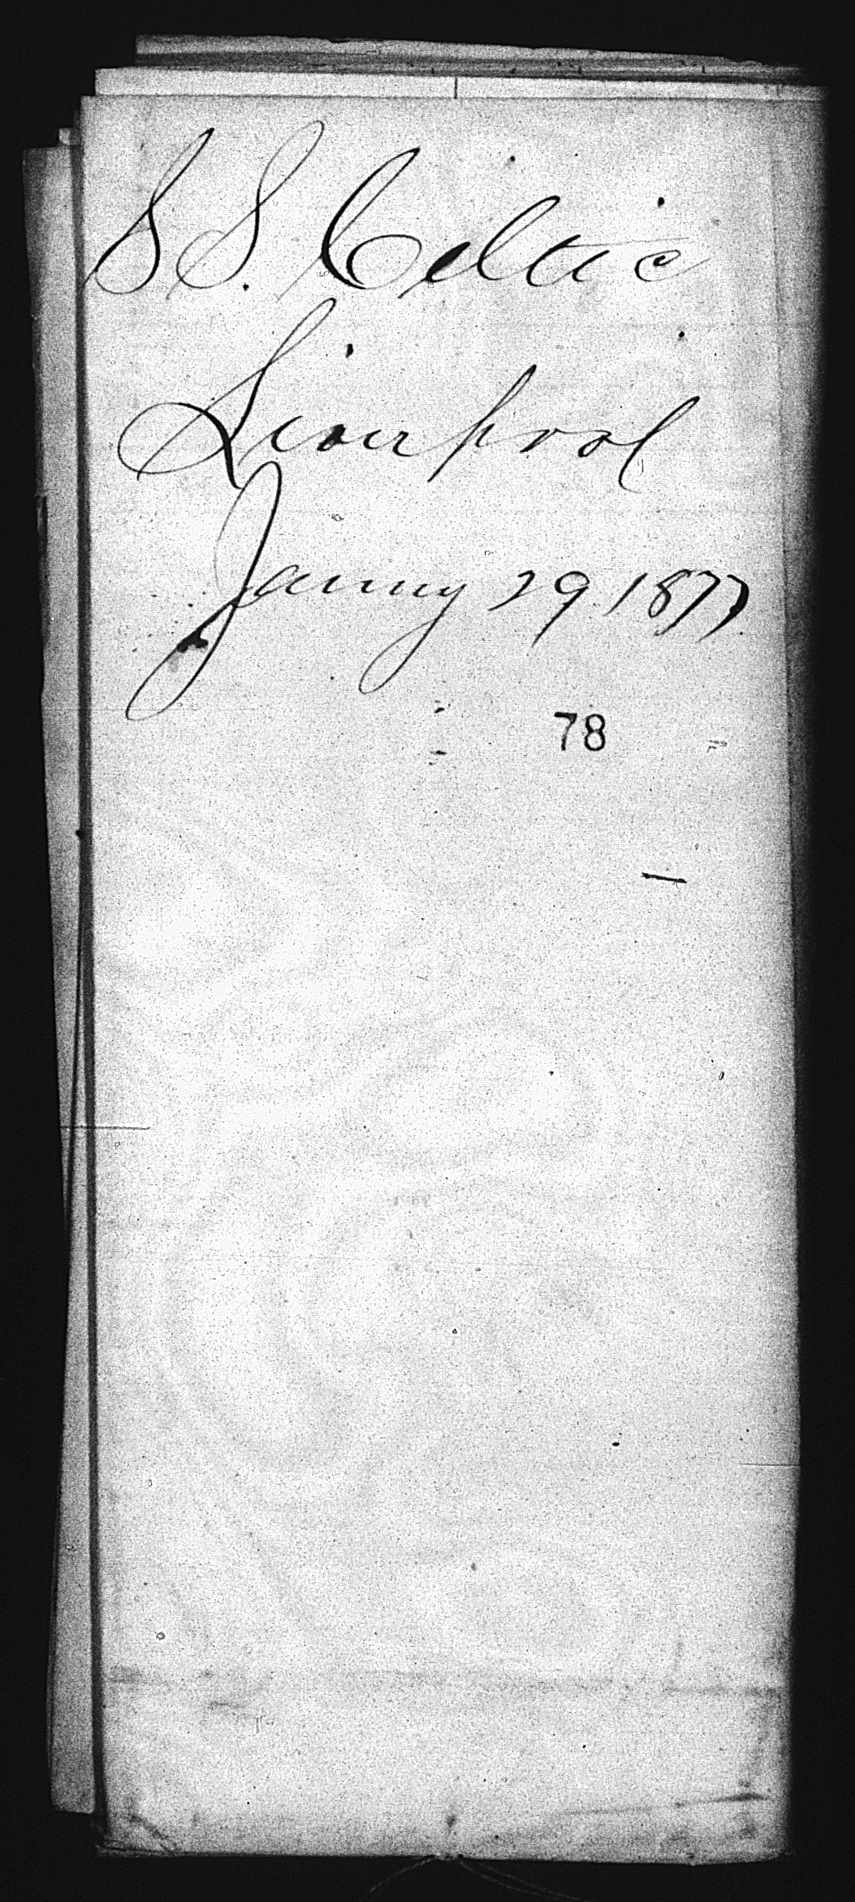 SS. Celtic
Liverpool
January 29 1877
78